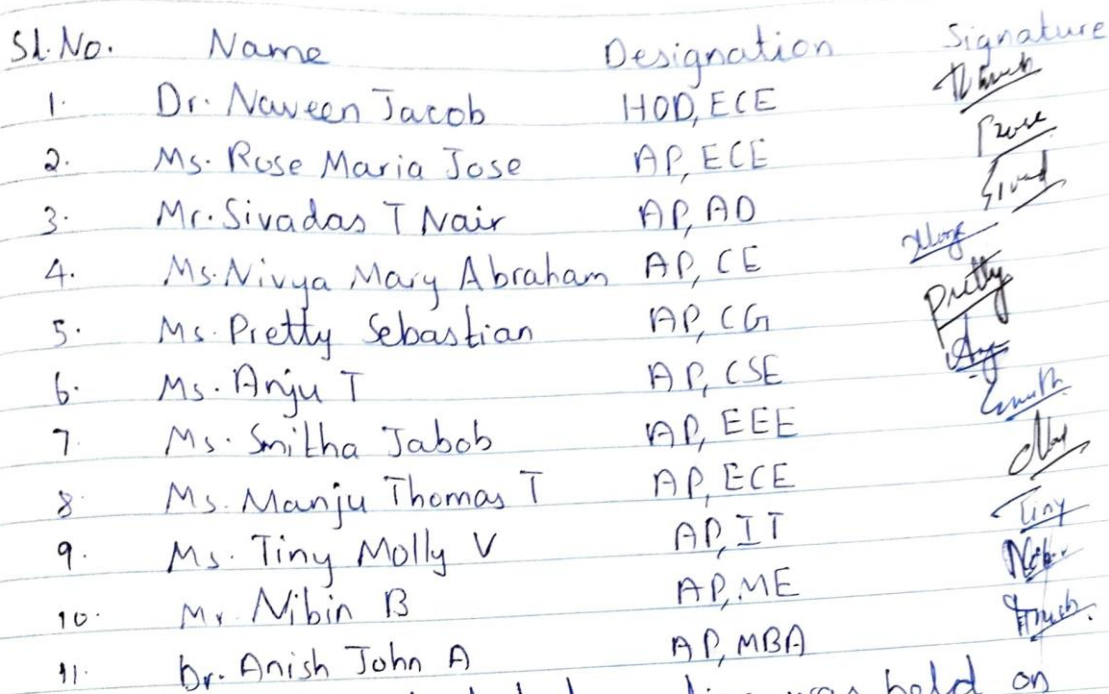 Sl.No. Name Designation Signature
1. Dr. Naveen Jacob HOD, ECE
2. Ms. Rose Maria Jose AP, ECE Rose
3. Mr. Sivadas T Nair AP, AD
4. Ms. Nivya Mary Abraham AP, CE
5. Ms. Pretty Sebastian AP, CG Pretty
6. Ms. Anju T AP, CSE
7. Ms. Smitha Jabob AP, EEE
8. Ms. Manju Thomas T AP, ECE
9. Ms. Tiny Molly V AP, IT Tiny
10. Mr. Nibin B AP, ME
11. Dr. Anish John A AP, MBA
was held on